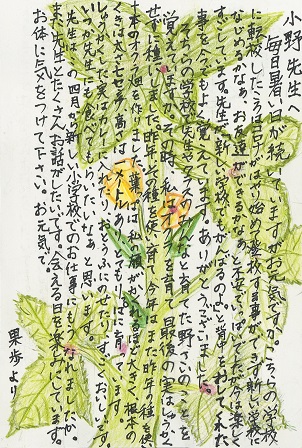 小野先生へ
毎日暑い日が続いていますがお元気ですか。こちらの学校
に転校したころはコロナがはやり始めて登校する事ができず新しい学校に
なじめるかなぁ、お友達ができるかなぁと不安でいっぱいでしたが今は楽しく
すごしています。先生が新しい学校でもがんばるのよ。と背中をおしてくれた
事を今でもよく覚えています。ありがとうございました。
そちらの学校で先生やクラスのみんなと育てた野さいのことを
覚えていますか。その時、私はオクラを育て最後の実はしゅうか
くせずに種にしました。昨年その種を使い育て、今年もまた昨年の種を使い
本のオクラの苗を作りました。葉は私の顔がかくれるほど大きく、根本の
太さは太さ七センチ、高さはニメートルあり、とてもりっぱに育っています。
しゅうかくした実はカレーやとうふにのせたりします。おいしいです。
いつか先生にも食べてもらいたいなぁと思います。
先生はこの四月から新しい小学校でのお仕事にもなれましたか。
また先生とたくさんお話がしたいです。会える日を楽しみにしています。
お体に気をつけて下さい。お元気で。
果歩より